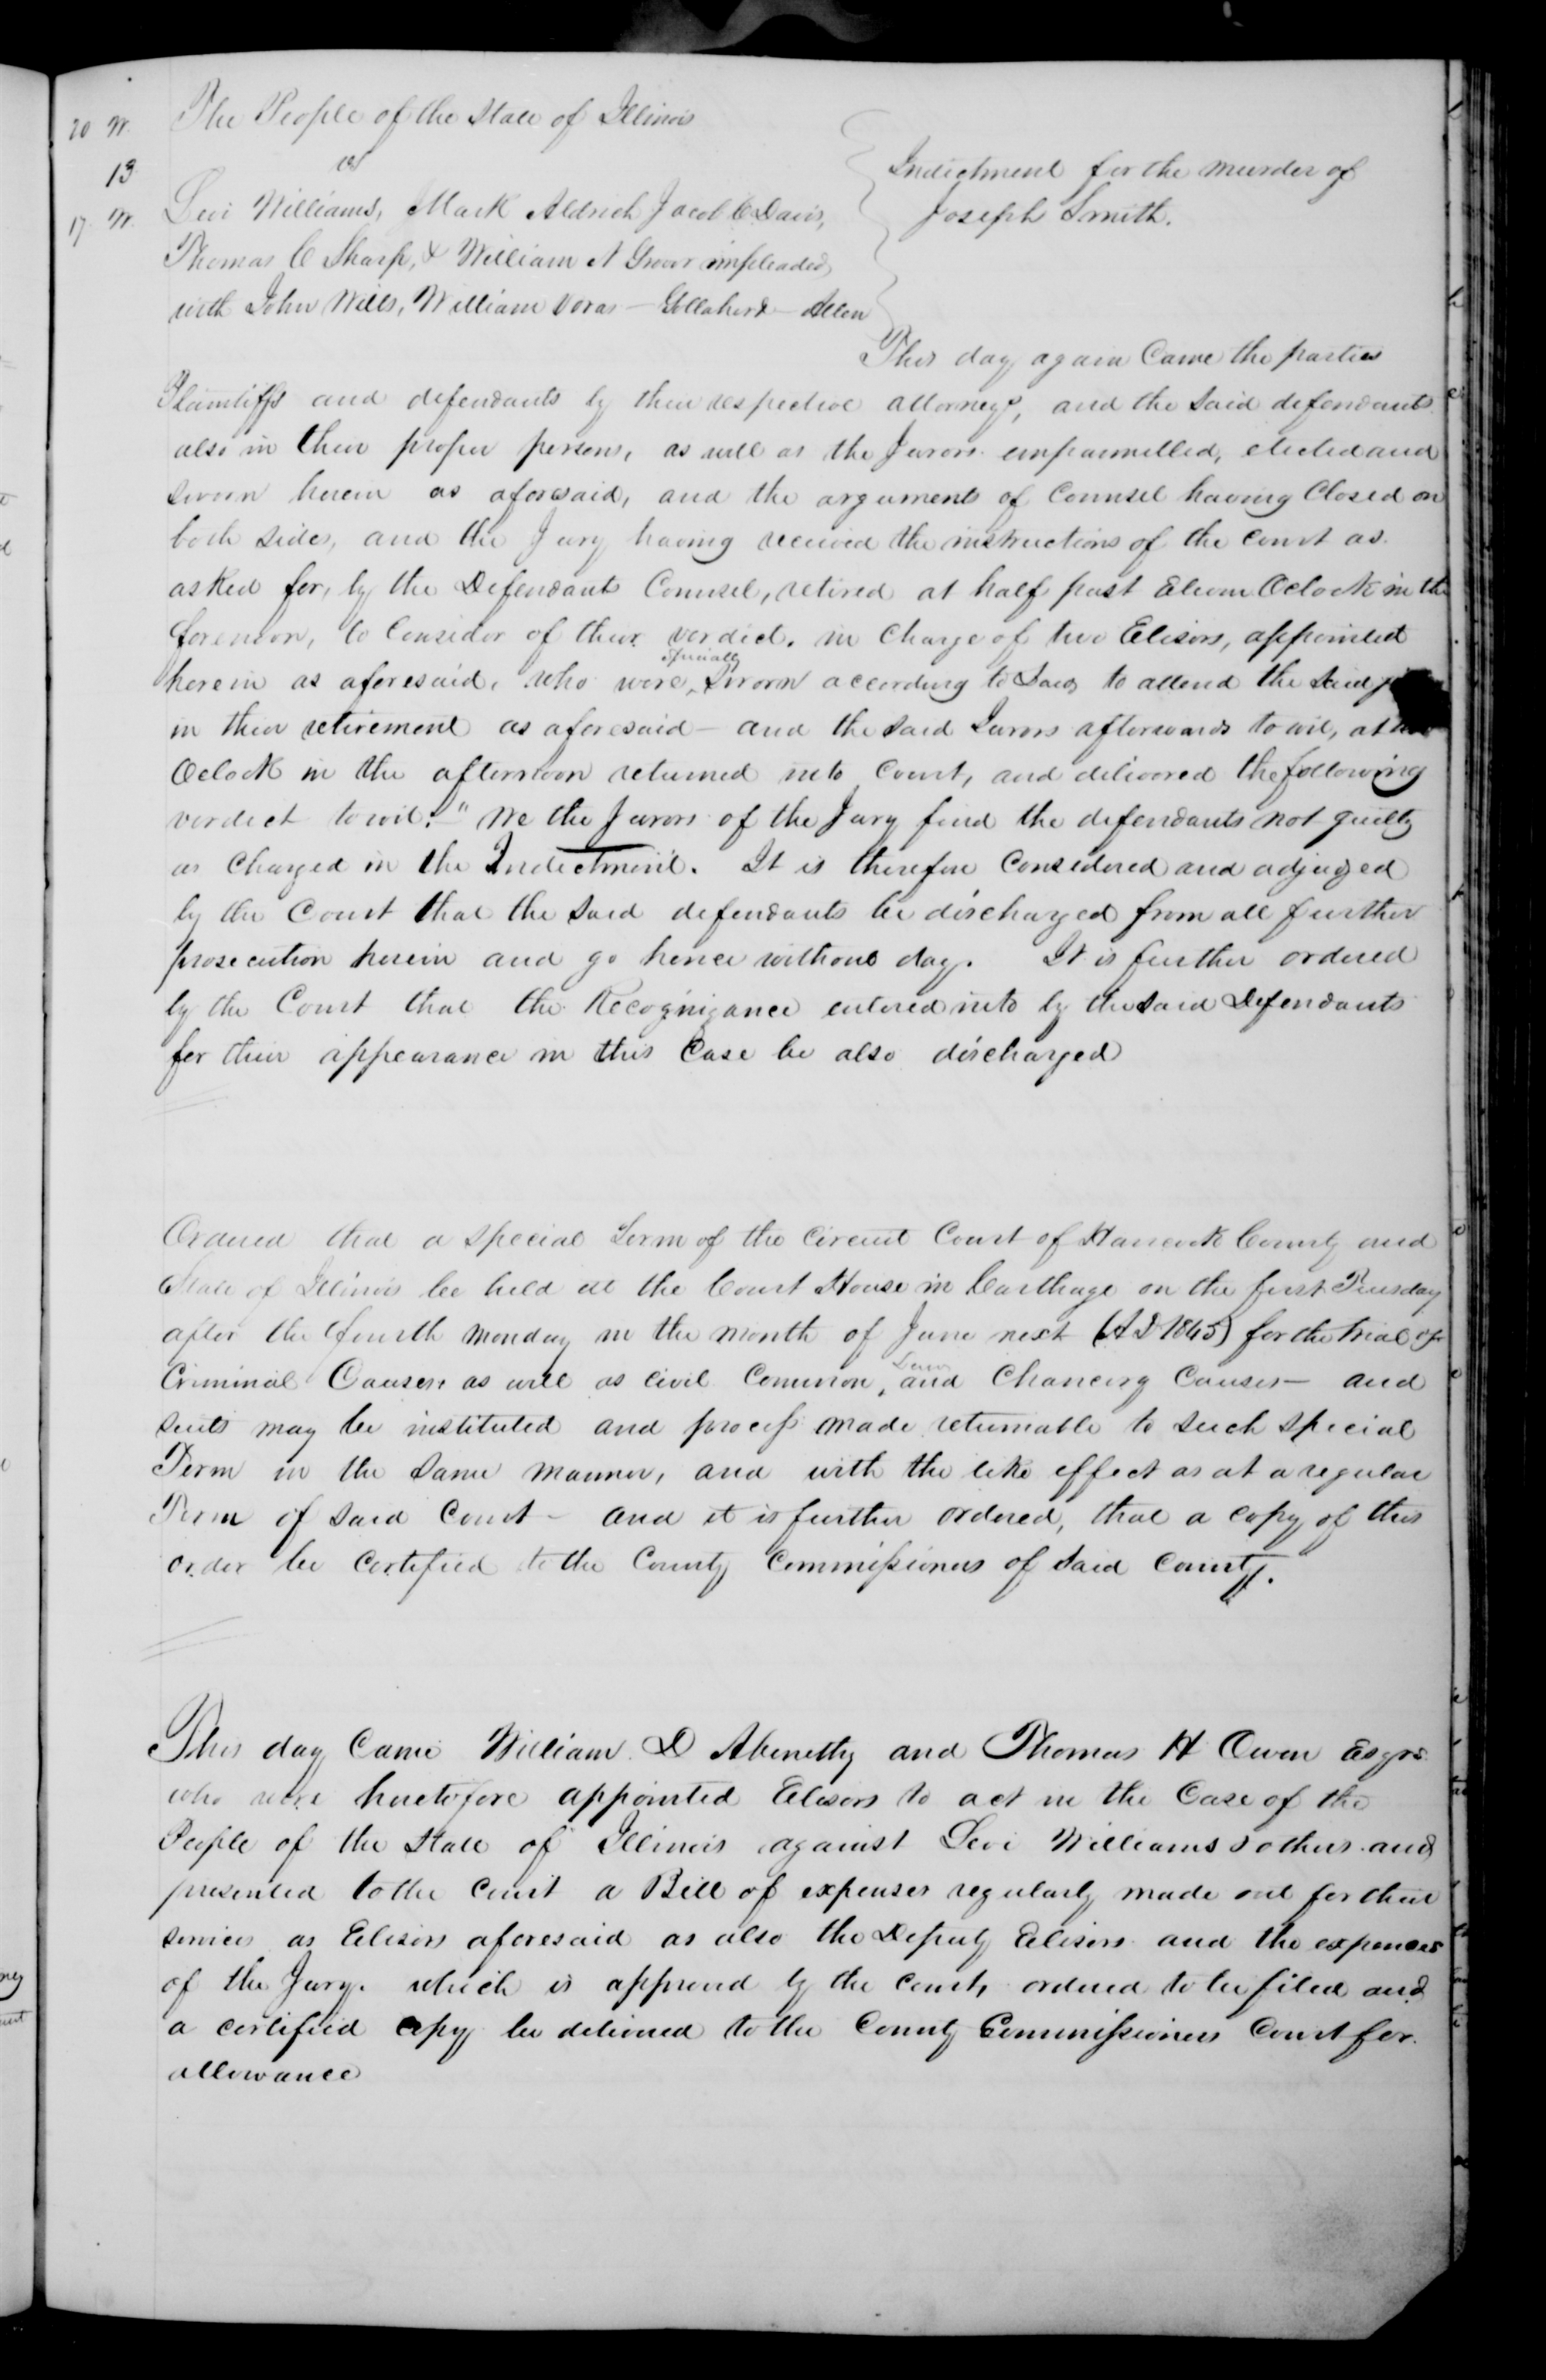 20 W. The People of the State of Illinois
13 vs
Indictment for the murder of
17. W. Levi Williams, Mark Aldrich Jacob C Davis,
Joseph Smith.
Thomas C Sharp, & William N Grover impleaded
with John Wills, William Voras — Gollaherd — Allen
This day again Came the parties
Plaintiffs and defendants by their respective attorneys, and the said defendants
also in their proper persons, as well as the Jurors empannelled, elected and
sworn herein as aforesaid, and the arguments of Counsel having Closed on
both sides, and the Jury having received the instructions of the court as
asked for, by the Defendants Counsel, retired at half past Eleven Oclock in the
forenoon, to Consider of their verdict. in Charge of two Elisors, appointed
herein as aforesaid, who were, specially Sworn according to Law to attend the said
in their retirement as aforesaid — and the said Jurors afterwards to wit, at two
Oclock in the afternoon returned into court, and delivered the following
verdict to wit: — "We the Jurors of the Jury find the defendants not guilty
as Charged in the Indictment. It is therefore Considered and adjudged
by the Court that the said defendants be discharged from all further
prosecution herein and go hence without day. It is further ordered
by the Court that the Recognizance entered into by the said Defendants
for their appearance in this Case be also discharged
Ordered that a special Term of the Circuit Court of Hancock County and
State of Illinois be held at the Court House in Carthage on the first Tuesday
after the fourth Monday in the month of June next (AD 1845) for the trial of
Criminal Causes as well as civil Common, Law and Chancery Causes — and
suits may be instituted and process made returnable to such special
Term in the same manner, and with the like effect as at a regular
Term of said Court — and it is further ordered, that a copy of this
order be certified to the County Commissioners of said County.
This day Came William D Abenethy and Thomas H Owen Esqrs
who were heretofore appointed Elisors to act in the Case of the
People of the State of Illinois against Levi Williams & others and
presented to the Court a Bill of expenses regularly made out for their
services as Elisors aforesaid as also the Deputy Elisors and the expences
of the Jury. which is approved by the Court, ordered to be filed and
a certified copy be delivered to the County Commissioners Court for
allowance